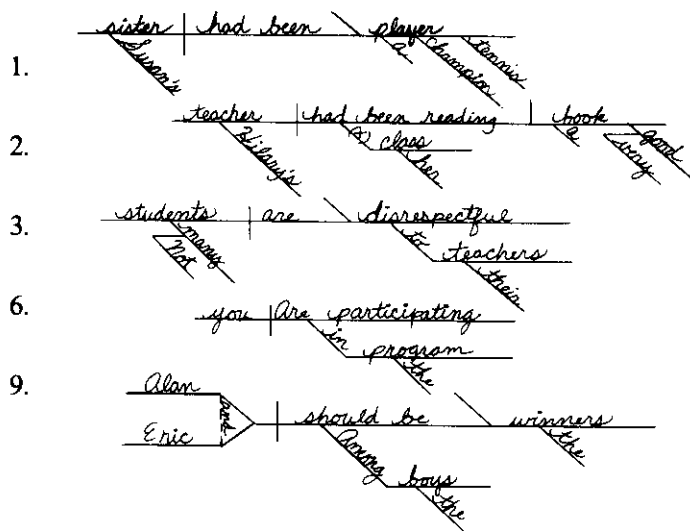 1. sister had been player
Susan's a champion tennis
2. teacher had been reading book
Hilary's (x) class her a very good
3. students are disrespectful
Not many to teachers their
6. you Are participating
in program the
9. Alan and Eric should be winners
Among boys the the